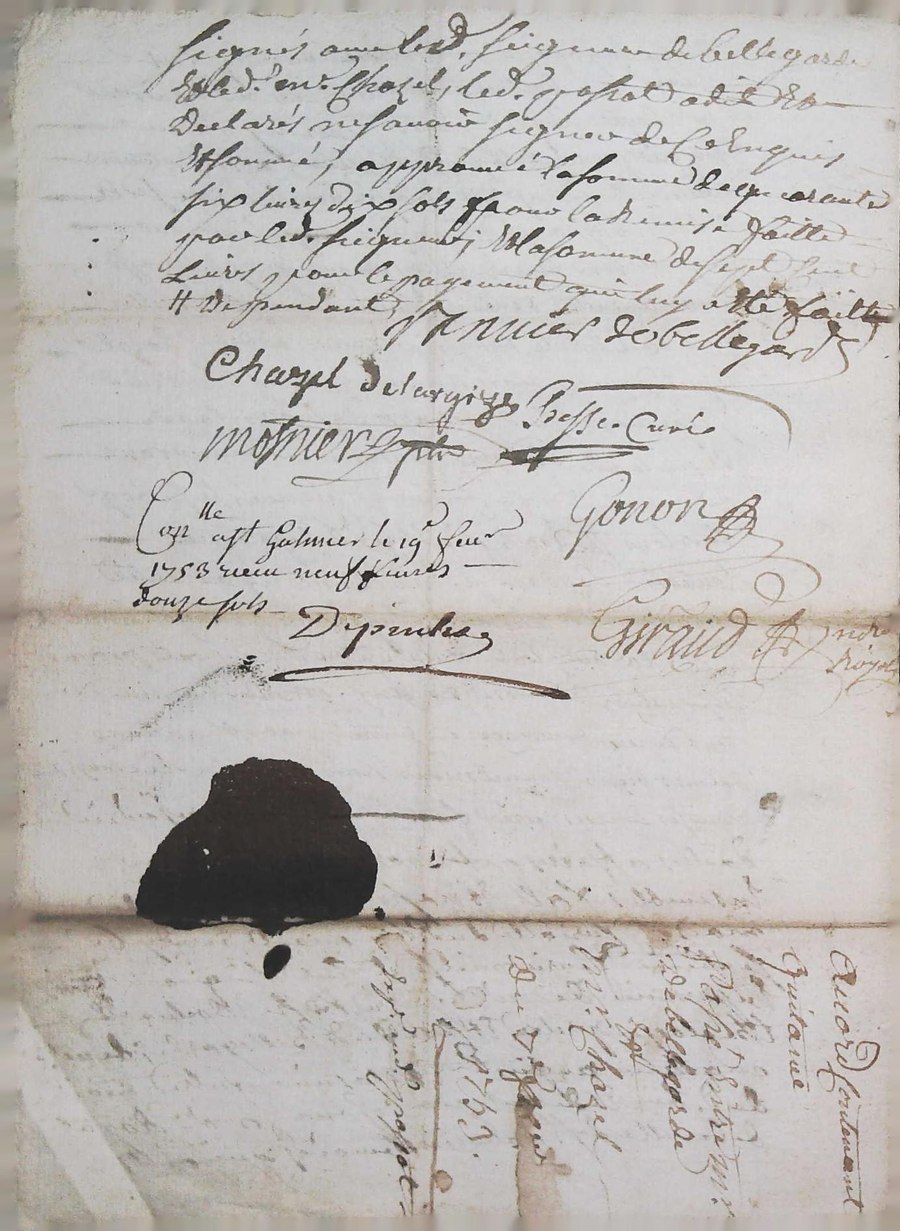 signés avec led. seigneur de bellegarde
Et led. mr. Chazel, led. a dit Et
Declarés ne savoir signer de Ce Enquis
Et sommé, approuvé la somme de quarante
six livres dix sols pour la Remise faitte
par led. seigneur, Et la somme de sept Cent
Livres pour le payement qui luy a Eté faitte
H Dependant
de bellegarde
Chazel delargize Besse Curé
monier
Gonon
Conlle a st Galmier le 19e feur
1753 receu neuf livres
douze sols
Depinhe
Giraud nore
Royal
Acord Contenant
quitance
Passé Entre mr.
De bellegarde
Et
mr. Chazel
Du 7e
1753.